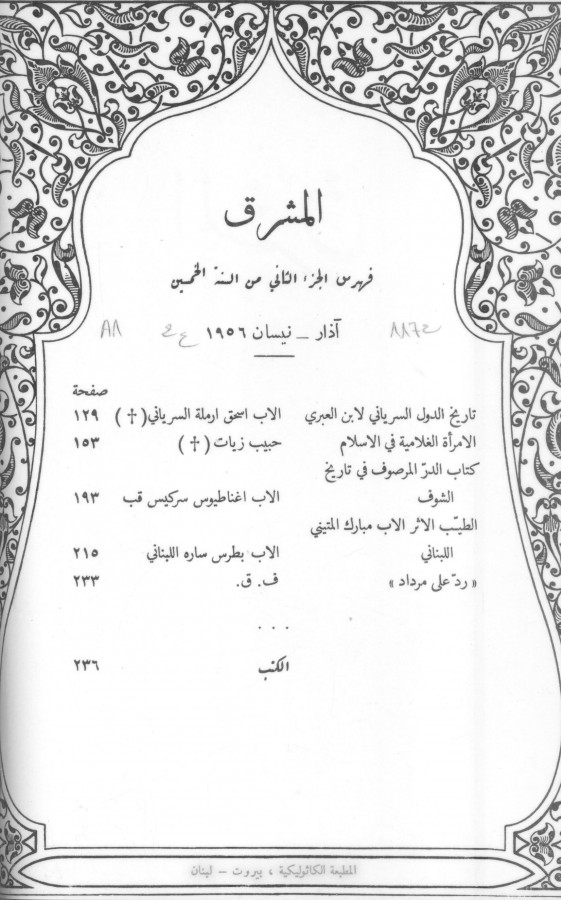 المشرق
فهرس الجزء الثاني من السنة الخمسين
آذار – نيسان ١٩٥٦
صفحة
تاريخ الدول السرياني لابن العبري الاب اسحق ارملة السرياني (†) ١٢٩
الامرأة الغلامية في الاسلام حبيب زيات (†) ١٥٣
كتاب الدرّ المرصوف في تاريخ
الشوف الاب اغناطيوس سركيس قب ١٩٣
الطيّب الاثر الاب مبارك المتيني
اللبناني الاب بطرس ساره اللبناني ٢١٥
« ردّ على مرداد » ف. ق. ٢٣٣
. . .
الكتب ٢٣٦
المطبعة الكاثوليكية ، بيروت – لبنان